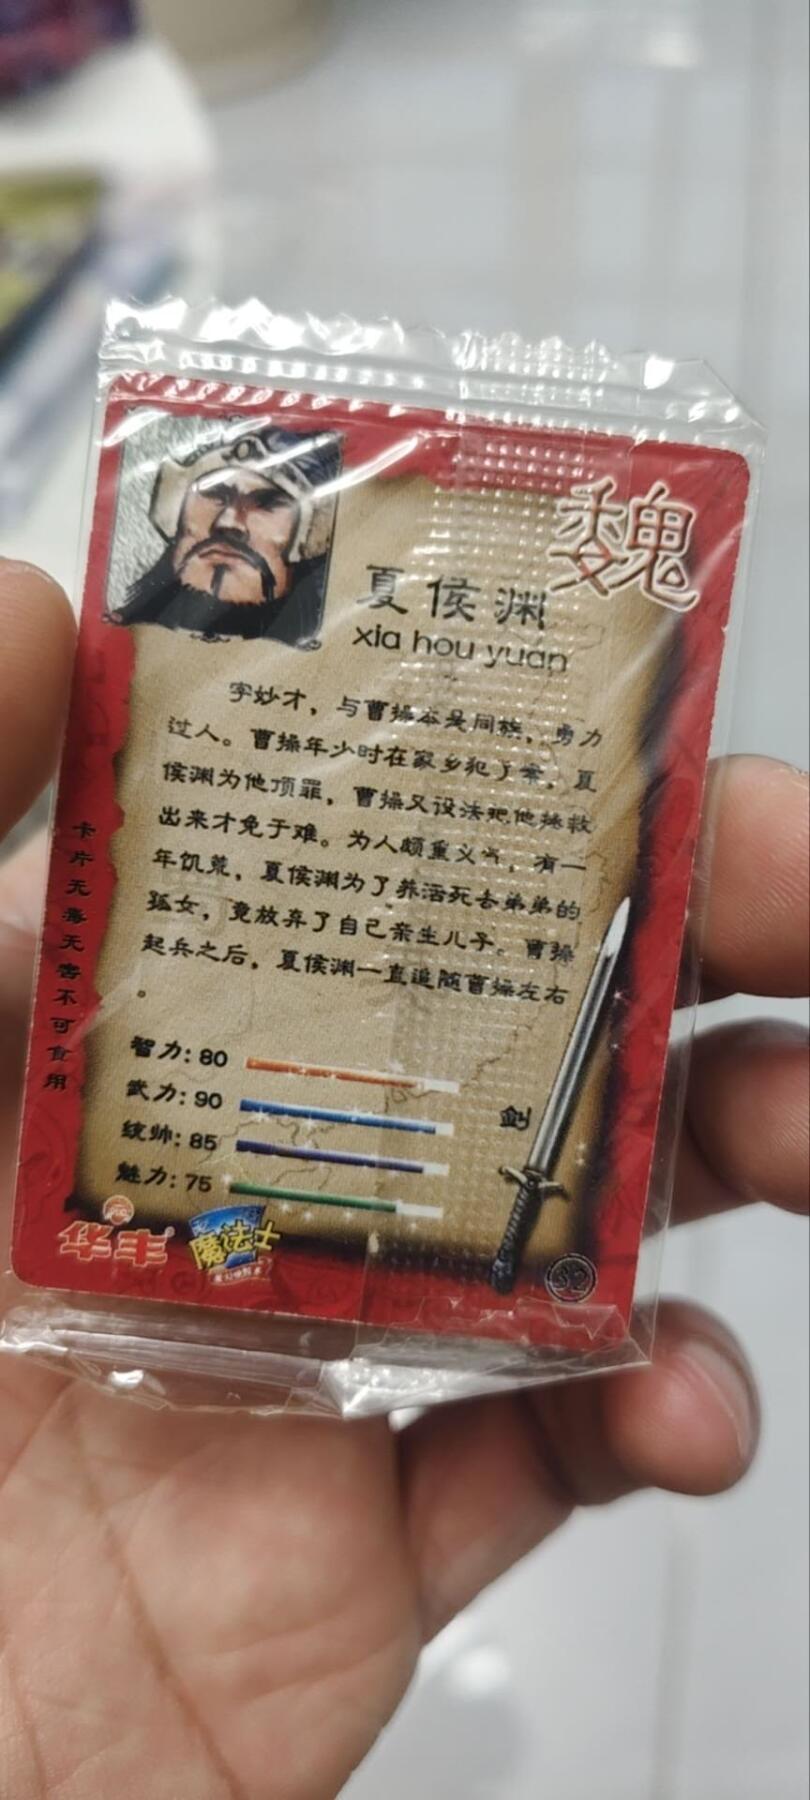 魏
夏侯渊
xia hou yuan
字妙才，与曹操本是同族，勇力
过人。曹操年少时在家乡犯了案，夏
侯渊为他顶罪，曹操又设法把他拯救
出来才免于难。为人颇重义气，有一
年饥荒，夏侯渊为了养活死去弟弟的
孤女，竟放弃了自己亲生儿子。曹操
起兵之后，夏侯渊一直追随曹操左右
。
卡片无毒无害不可食用
智力：80
武力：90
统帅：85
魅力：75
剑
华丰
魔法士